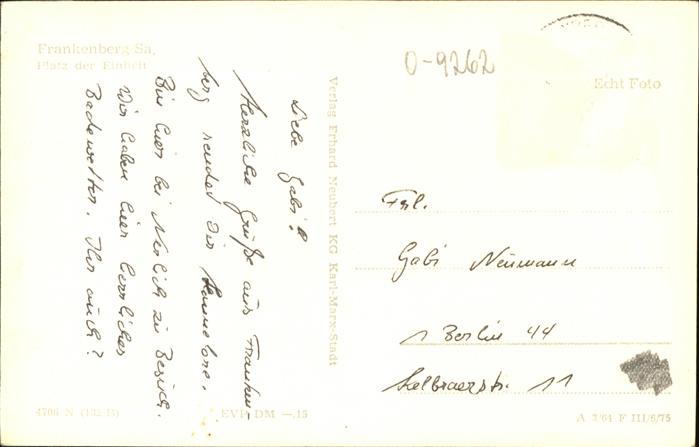 Frankenberg Sa.
Platz der Einheit
Liebe Gabi!
Herzliche Grüße aus Franken-
berg sendet Dir Hannelore.
Bin hier bei Nirlich zu Besuch.
Wir haben hier herrliches
Badewetter. Ihr auch?
4706 N (132 B)
EVP DM —.15
Verlag Erhard Neubert KG Karl-Marx-Stadt
0-9262
Echt Foto
Frl.
Gabi Neumann
1 Berlin 44
Selbraerstr. 11
A 3/64 F III/6/75